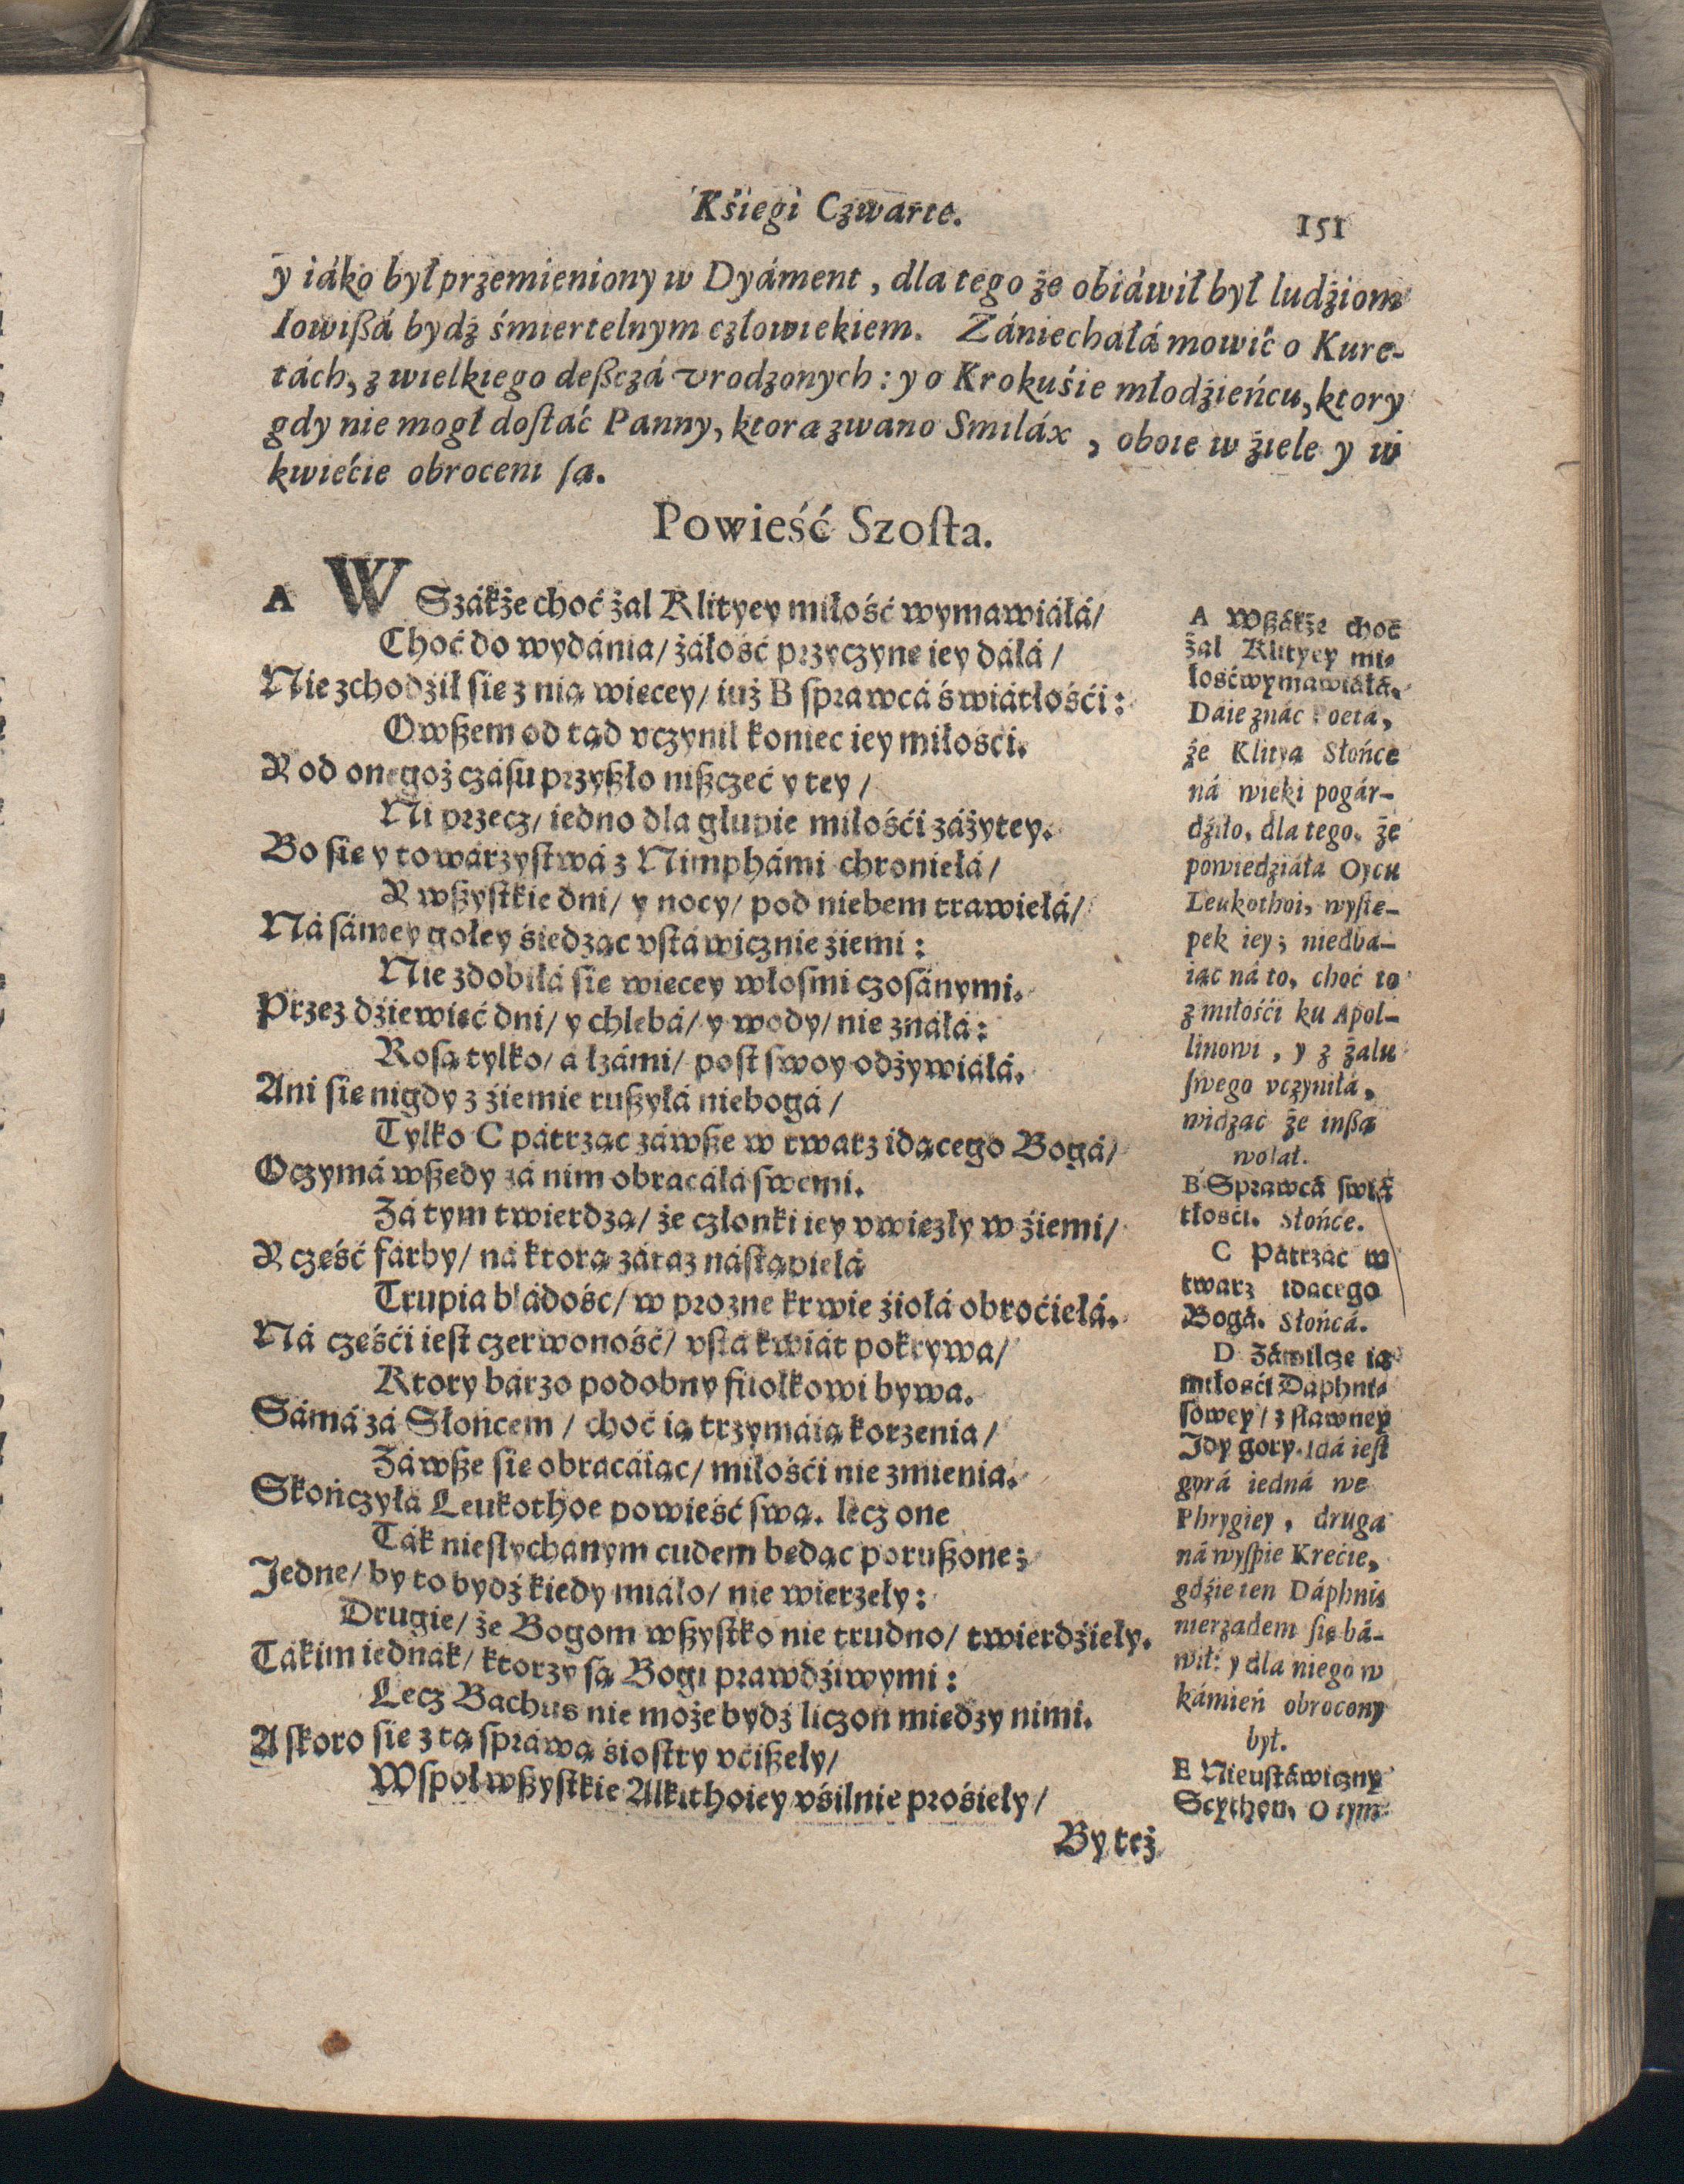 Kśiegi Czwarte.
151
y iáko był przemieniony w Dyáment, dla tego że obiáwił był ludźiom
Iowißá bydź śmiertelnym człowiekiem. Zániechałá mowić o Kure-
tách, z wielkiego deßczá vrodzonych: y o Krokuśie młodźieńcu, ktory
gdy nie mogł doſtáć Panny, ktora zwano Smiláx, oboie w źiele y w
kwiećie obroceni ſą.
Powieść Szoſta.
A WSzákże choć żal Klityey miłość wymawiáłá/
Choć do wydánia/ żáłość przyczyne iey dáłá/
Nie zchodźił sie z nią wiecey/ iuż B sprawcá świátłośći:
Owßem od tąd vczynił koniec iey miłośći.
Y od onegoż czásu przyßło nißczeć y tey/
Ni przecz/ iedno dla głupie miłośći záżytey.
Bo sie y towárzystwá z Nimphámi chroniełá/
Y wßystkie dni/ y nocy/ pod niebem trawiełá/
Ná sámey gołey śiedząc vstáwicznie źiemi:
Nie zdobiłá sie wiecey włosmi czosánymi.
Przez dźiewięć dni/ y chlebá/ y wody/ nie znáłá:
Rosą tylko/ á łzámi/ post swoy odżywiáłá.
Ani sie nigdy z źiemie rußyłá niebogá/
Tylko C pátrząc záwße w twarz idącego Bogá/
Oczymá wßedy zá nim obracáłá swemi.
Zá tym twierdzą/ że członki iey vwięzły w źiemi/
Y cześć fárby/ ná ktorą záraz nástąpiełá
Trupia bládość/ w prozne krwie źiołá obroćiełá.
Ná cześći iest czerwoność/ vstá kwiát pokrywa/
Ktory bárzo podobny fiiołkowi bywa.
Sámá zá Słońcem/ choć ią trzymáią korzenia/
Záwße sie obracáiąc/ miłośći nie zmienia.
Skończyłá Leukothoe powieść swą. lecz one
Ták niesłychánym cudem będąc porußone;
Jedne/ by to bydź kiedy miáło/ nie wierzeły:
Drugie/ że Bogom wßystko nie trudno/ twierdźieły.
Tákim iednák/ ktorzy są Bogi prawdźiwymi:
Lecz Bachus nie może bydź liczon miedzy nimi.
A skoro sie z tą spráwą śiostry vćißeły/
Wspoł wßystkie Alkithoiey vśilnie prośieły/
By też
A Wßákże choć
żal Klityey mi-
łość wymawiáłá.
Dáie znáć Poetá,
że Klitya Słońce
ná wieki pogár-
dźiło, dla tego, że
powiedziáła Oycu
Leukothoi, wyſte-
pek iey; niedbá-
iąc ná to, choć to
z miłośći ku Apol-
linowi, y z żalu
ſwego vczyniłá,
widząc że inßą
wolał.
B Sprawcá świá
tłośći. Słońce.
C Pátrząc w
twarz idącego
Bogá. Słońcá.
D Zámilczę ia
miłośći Daphni-
sowey/ z sławney
Idy gory. Idá ieſt
gorá iedná we
Phrygiey, druga
ná wyſpie Krećie,
gdźie ten Dáphnis
nierządem ſię bá-
wił: y dla niego w
kámień obrocony
był.
E Nieustáwiczny
Scython. O tym